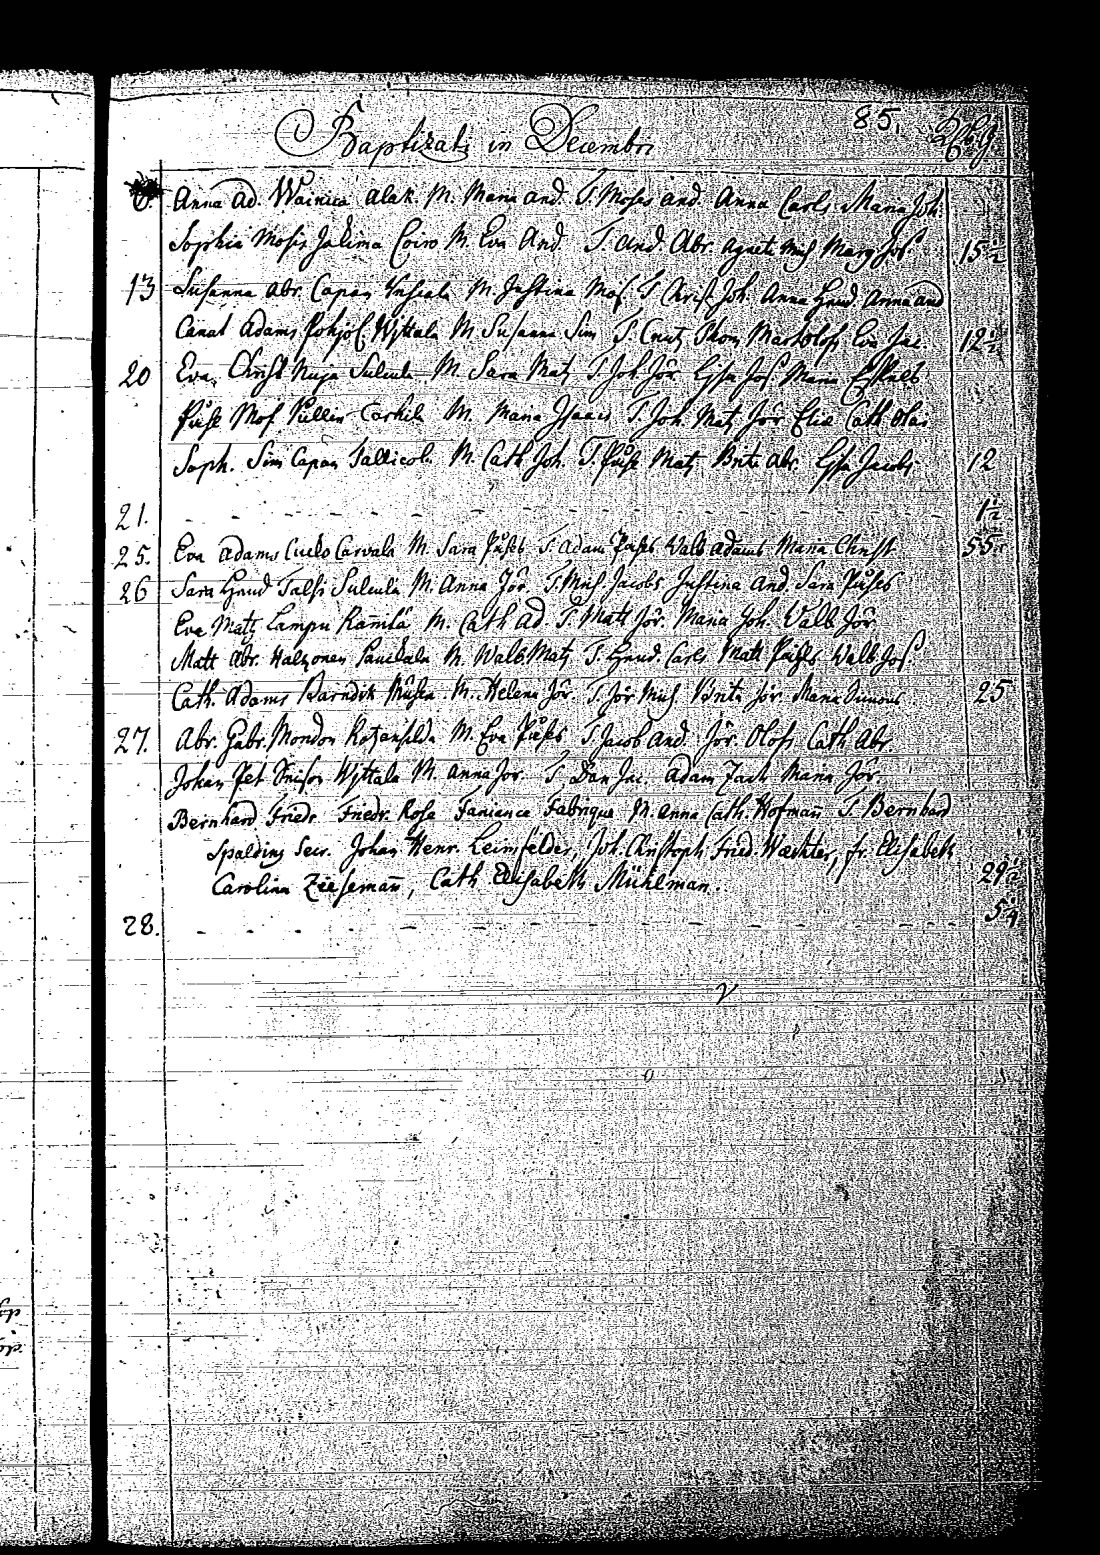 85.
Baptizati in Decembri
6 Anna Ad. Wainica Alak. M. Maria And. T. Moses And. Anna Carls Maria Joh.
Sophia Mosis Jakima Coiro M. Eva And. T. And. Abr. Agneta Mich Marg Jos. 15½
13 Susanna Abr. Capan M. Justina Mos. T. Christ. Joh. Anna Hend. Anna And
Canut Adams Pohjol Wjttala M. Susanna Sim T. Cnut Thom Mart Olofs Eva Jac. 12½
20 Eva Christ Nuja Sulcula M. Sara Matz T. Joh Jör. Lisa Jos. Maria Eskels
Påhl Mos. Pullin Carhila M. Maria Isaacs T. Joh. Matz Jör Eliæ Cath Olai
Soph. Sim Capan Tallicol. M. Cath Joh. T. Påhl Matz Brita Abr. Lisa Jacobs 12
21. - - - - - - - 1½
25. Eva Adams Cucko Carvala M. Sara Påhls T. Adam Påhls Walb Adams Maria Christ 55
26 Sara Hend Talsi Sulcula M. Anna Jör. T. Mich Jacobs Justina And. Sara Påhls
Eva Matz Lampu Rämälä M. Cath Ad. T. Matt Jör. Maria Joh. Walb Jör
Matt Abr. Halzonen Pauckala M. Walb Matz T. Hend. Carls Matt Påhls Walb Jos.
Cath. Adams M. Helena Jör. T. Jör Mich Brita Jör Maria Simons 25
27. Abr. Gabr. Mondon M. Eva Påhls T. Jacob And. Jör. Olofs Cath Abr.
Johan Pet Wjttala M. Anna Jör. T. Dan Jac. Adam Zach Maria Jör.
Bernhard Friedr. Friedr. Rose Faniance Fabrique M. Anna Cath. Hofman̄ T. Bernhard
Spalding Secr. Johan Henr. Leimfelder, Joh. Christoph Fried. Waechter, fr. Elisabeth
Carolina Ziesemañ, Cath Elisabeth Mühlman. 29½
28. - - - - - - - 5¼